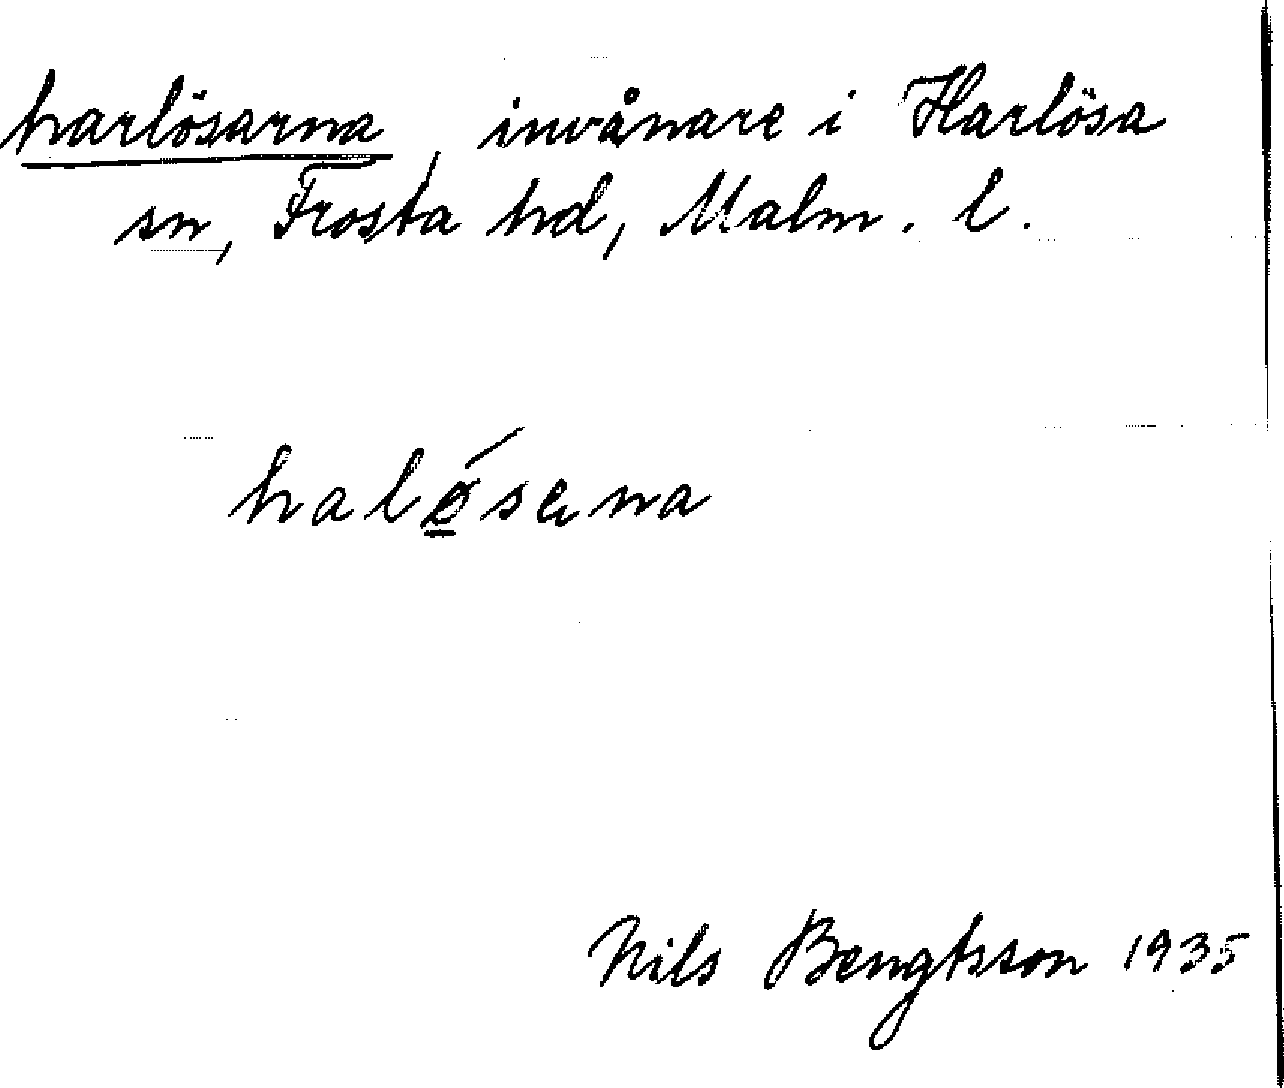 harlösarna, invånare i Harlösa
sn, Frosta hd, Malm. l.
halǿ̲sana
Nils Bengtsson 1935